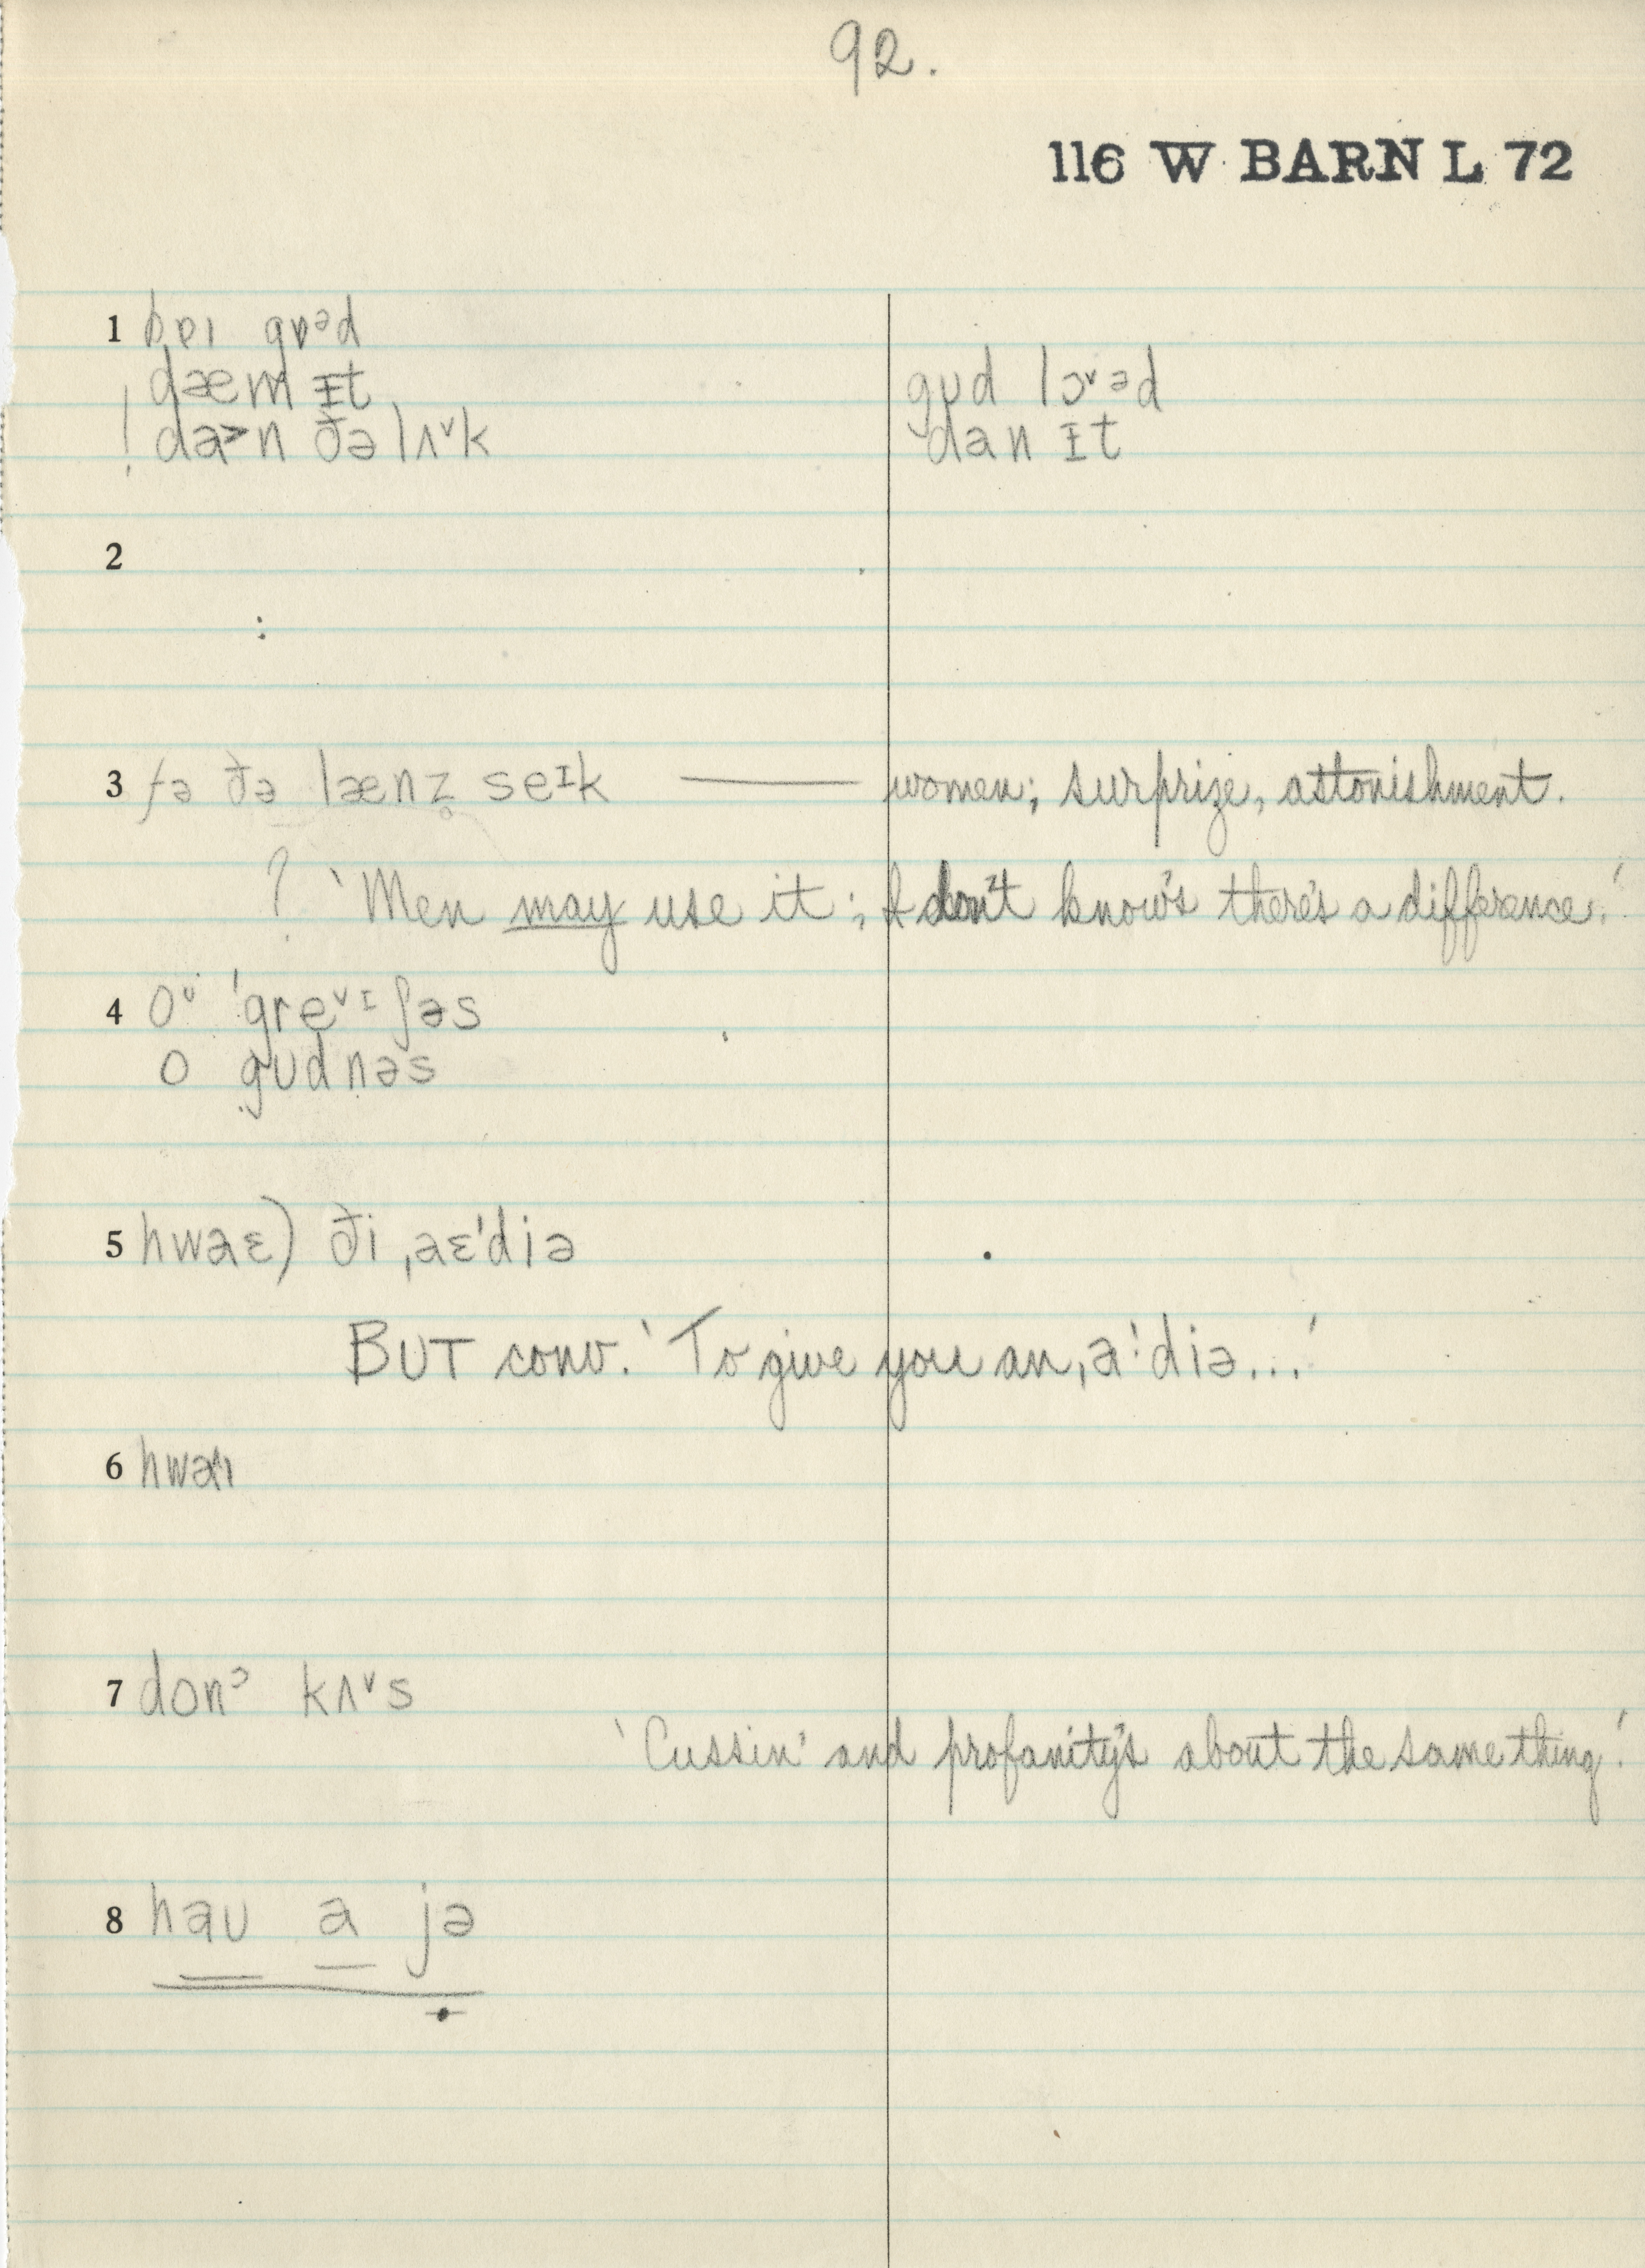 92.
116 W BARN L 72
1 bɒɪ gɒᵊd
dæm ɪt gʊd lɔ˅əd
! da>n ðə lʌ˅k dan ɪt
2
:
3 fə ðə lænz̥ seɪk —— women; surprize, astonishment.
? 'Men may use it; I don't know's there's a difference.'
4 oᶷ 'gre˅ɪʃəs
o gʊdnəs
5 hwaɛ) ði ,aɛ'diə
BUT conv. 'To give you an ,a'diə...'
6 hwaɪ
7 donᵓ kʌ˅s
'Cussin' and profanity's about the same thing.'
8 haʊ a jə